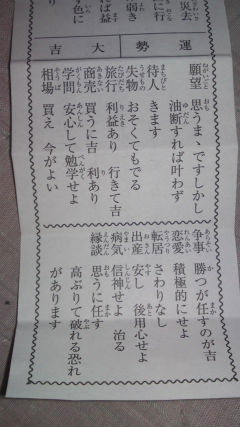 災去
に行
弱き
ば益
色に
運勢
大吉
願望 思うまゝですしかし
油断すれば叶わず
待人 きます
失物 おそくてもでる
旅行 利益あり 行きて吉
商売 買うに吉 利あり
学問 安心して勉学せよ
相場 買え 今がよい
争事 勝つが任すのが吉
恋愛 積極的にせよ
転居 さわりなし
出産 安し 後用心せよ
病気 信神せよ 治る
縁談 思うに任す
高ぶりて破れる恐れ
があります